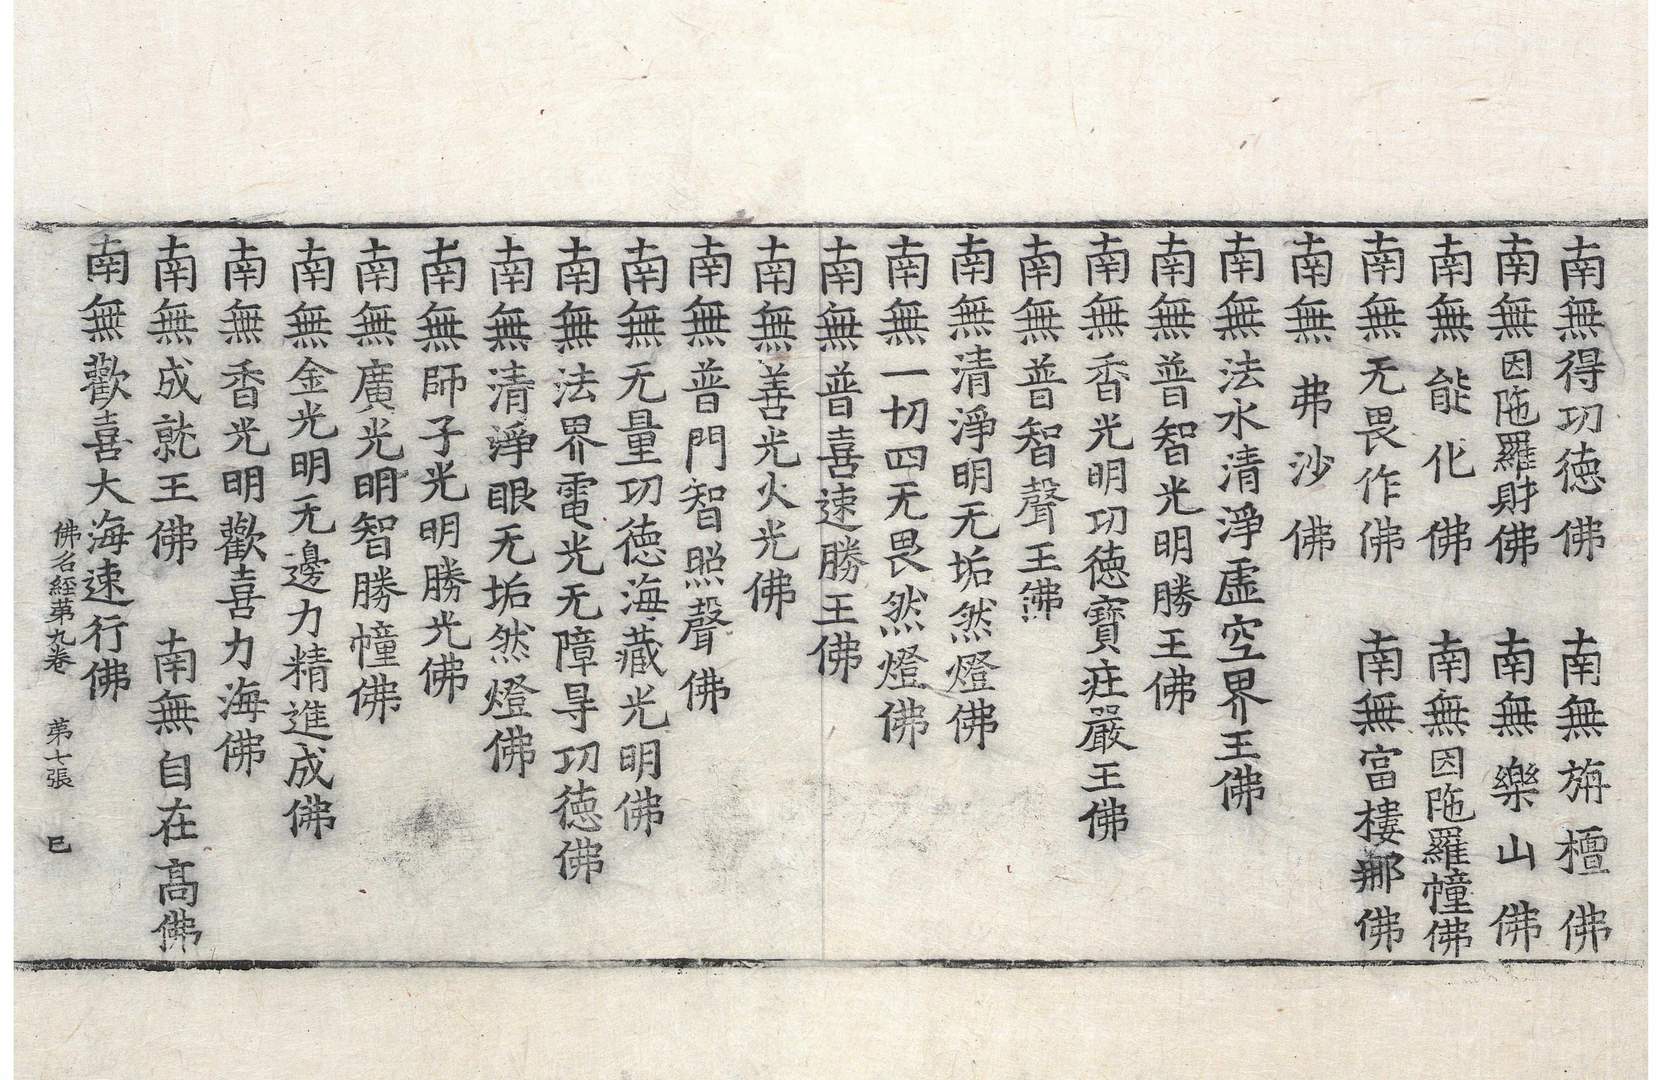 南無得功德佛　南無旃檀佛
南無因陁羅財佛　南無樂山佛
南無能化佛　南無因陁羅幢佛
南無无畏作佛　南無富樓那佛
南無弗沙佛
南無法水清淨虛空界王佛
南無普智光明勝王佛
南無香光明功德寶莊嚴王佛
南無普智聲王佛
南無清淨明无垢然燈佛
南無一切四无畏然燈佛
南無普喜速勝王佛
南無善光火光佛
南無普門智照聲佛
南無无量功德海藏光明佛
南無法界電光无障㝵功德佛
南無清淨眼无垢然燈佛
南無師子光明勝光佛
南無廣光明智勝幢佛
南無金光明无邊力精進成佛
南無香光明歡喜力海佛
南無成就王佛　南無自在高佛
南無歡喜大海速行佛
佛名經第九卷　第七張　巳